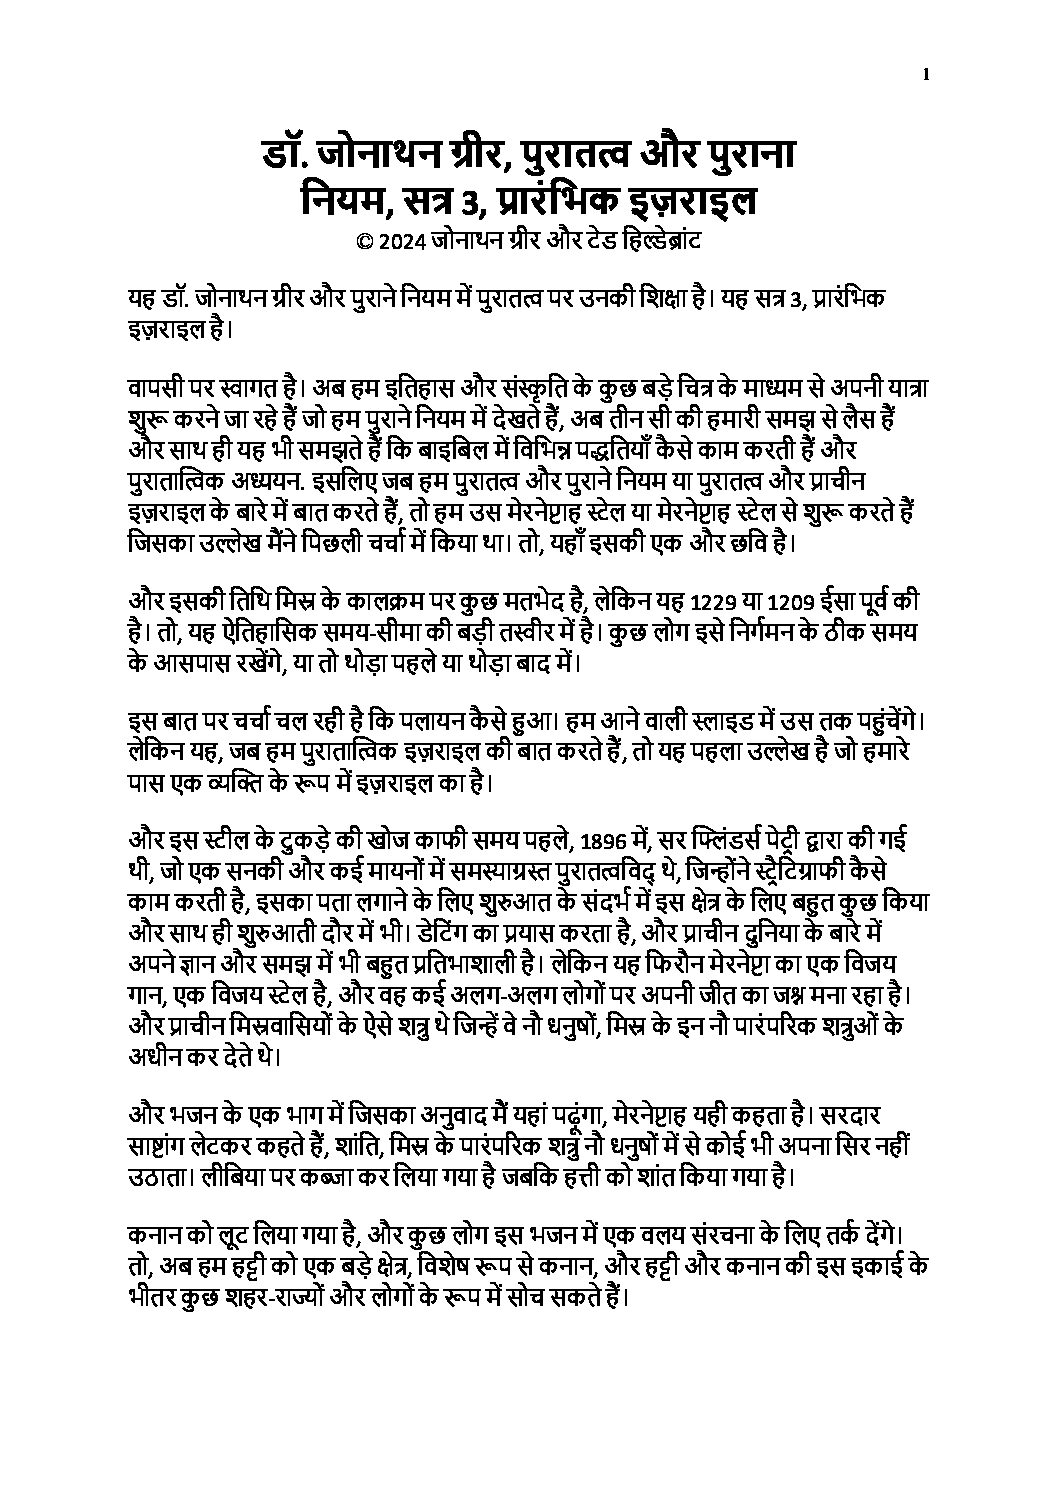 1
डॉ. जोनाथन ग्रीर, पुरातत्व और पुराना
नियम, सत्र 3, प्रारंभिक इज़राइल
© 2024 जोनाथन ग्रीर और टेड हिल्डेब्रांट
यह डॉ. जोनाथन ग्रीर और पुराने नियम में पुरातत्व पर उनकी शिक्षा है। यह सत्र 3, प्रारंभिक
इज़राइल है।
वापसी पर स्वागत है। अब हम इतिहास और संस्कृति के कुछ बड़े चित्र के माध्यम से अपनी यात्रा
शुरू करने जा रहे हैं जो हम पुराने नियम में देखते हैं, अब तीन सी की हमारी समझ से लैस हैं
और साथ ही यह भी समझते हैं कि बाइबिल में विभिन्न पद्धतियाँ कैसे काम करती हैं और
पुरातात्विक अध्ययन. इसलिए जब हम पुरातत्व और पुराने नियम या पुरातत्व और प्राचीन
इज़राइल के बारे में बात करते हैं, तो हम उस मेरनेप्टाह स्टेल या मेरनेप्टाह स्टेल से शुरू करते हैं
जिसका उल्लेख मैंने पिछली चर्चा में किया था। तो, यहाँ इसकी एक और छवि है।
और इसकी तिथि मिस्र के कालक्रम पर कुछ मतभेद है, लेकिन यह 1229 या 1209 ईसा पूर्व की
है। तो, यह ऐतिहासिक समय-सीमा की बड़ी तस्वीर में है। कुछ लोग इसे निर्गमन के ठीक समय
के आसपास रखेंगे, या तो थोड़ा पहले या थोड़ा बाद में।
इस बात पर चर्चा चल रही है कि पलायन कैसे हुआ। हम आने वाली स्लाइड में उस तक पहुंचेंगे।
लेकिन यह, जब हम पुरातात्विक इज़राइल की बात करते हैं, तो यह पहला उल्लेख है जो हमारे
पास एक व्यक्ति के रूप में इज़राइल का है।
और इस स्टील के टुकड़े की खोज काफी समय पहले, 1896 में, सर फ्लिंडर्स पेट्री द्वारा की गई
थी, जो एक सनकी और कई मायनों में समस्याग्रस्त पुरातत्वविद् थे, जिन्होंने स्ट्रैटिग्राफी कैसे
काम करती है, इसका पता लगाने के लिए शुरुआत के संदर्भ में इस क्षेत्र के लिए बहुत कुछ किया
और साथ ही शुरुआती दौर में भी। डेटिंग का प्रयास करता है, और प्राचीन दुनिया के बारे में
अपने ज्ञान और समझ में भी बहुत प्रतिभाशाली है। लेकिन यह फिरौन मेरनेप्टा का एक विजय
गान, एक विजय स्टेल है, और वह कई अलग-अलग लोगों पर अपनी जीत का जश्न मना रहा है।
और प्राचीन मिस्रवासियों के ऐसे शत्रु थे जिन्हें वे नौ धनुषों, मिस्र के इन नौ पारंपरिक शत्रुओं के
अधीन कर देते थे।
और भजन के एक भाग में जिसका अनुवाद मैं यहां पढ़ूंगा, मेरनेप्टाह यही कहता है। सरदार
साष्टांग लेटकर कहते हैं, शांति, मिस्र के पारंपरिक शत्रु नौ धनुषों में से कोई भी अपना सिर नहीं
उठाता। लीबिया पर कब्जा कर लिया गया है जबकि हत्ती को शांत किया गया है।
कनान को लूट लिया गया है, और कुछ लोग इस भजन में एक वलय संरचना के लिए तर्क देंगे।
तो, अब हम हट्टी को एक बड़े क्षेत्र, विशेष रूप से कनान, और हट्टी और कनान की इस इकाई के
भीतर कुछ शहर-राज्यों और लोगों के रूप में सोच सकते हैं।